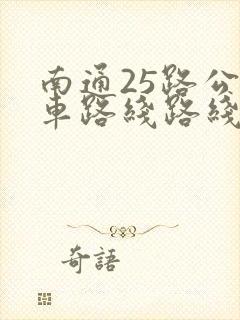 南通25路公
車路綫路綫
奇語